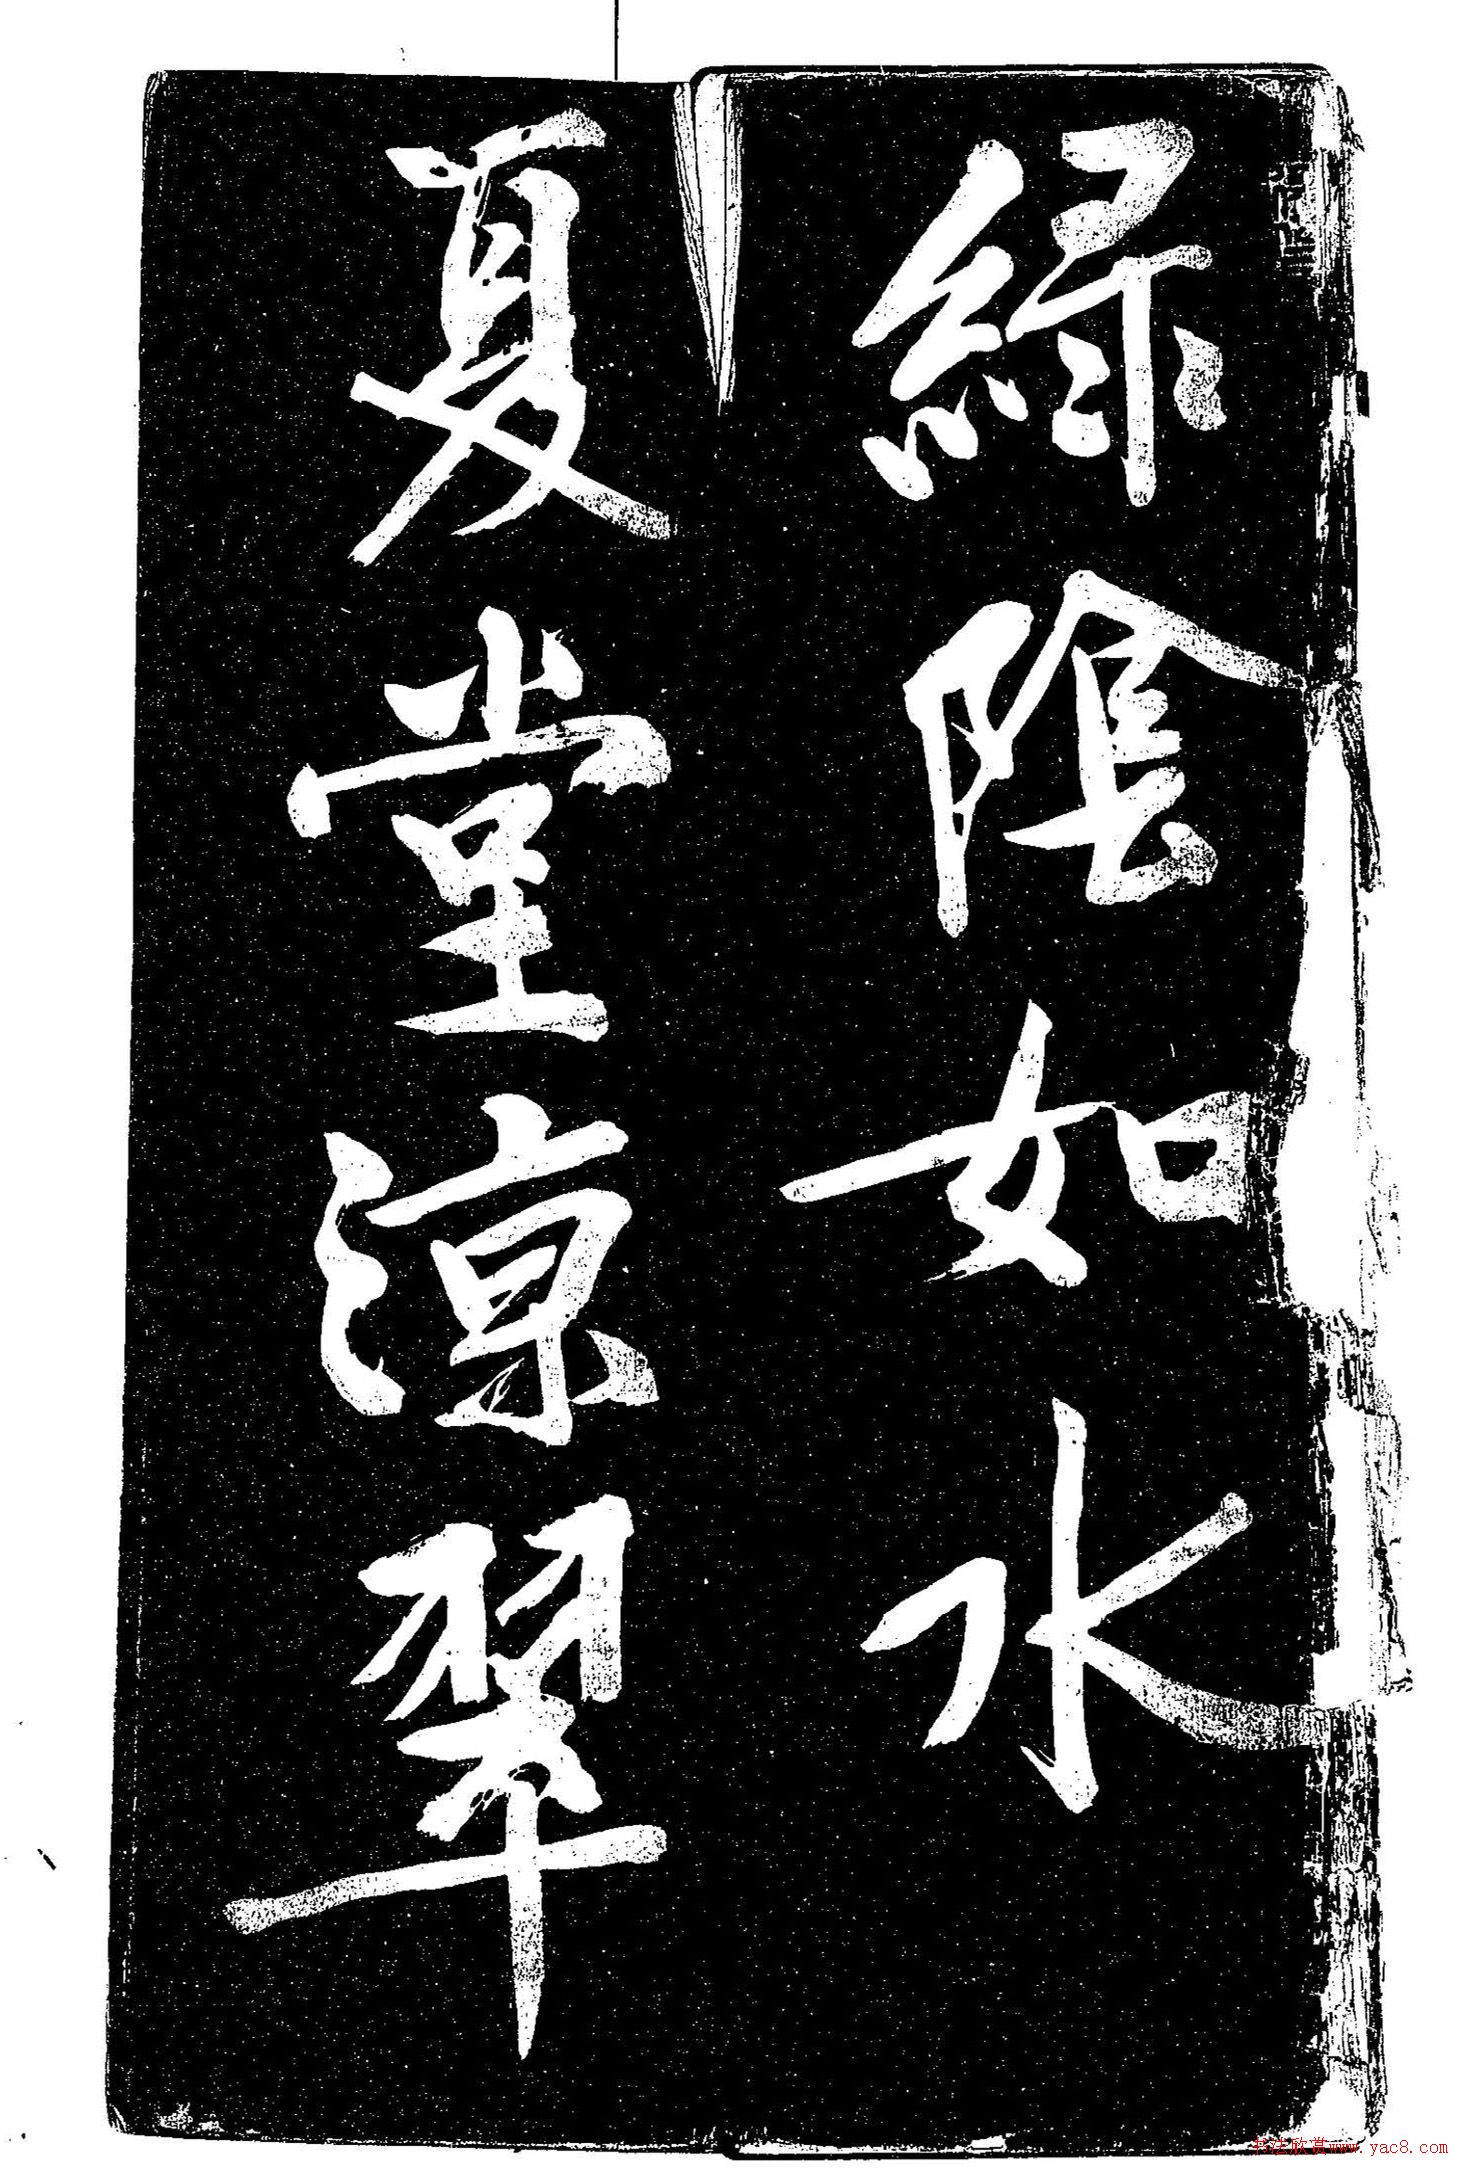 綠陰如水
夏堂涼翠
书法欣赏www.yac8.com